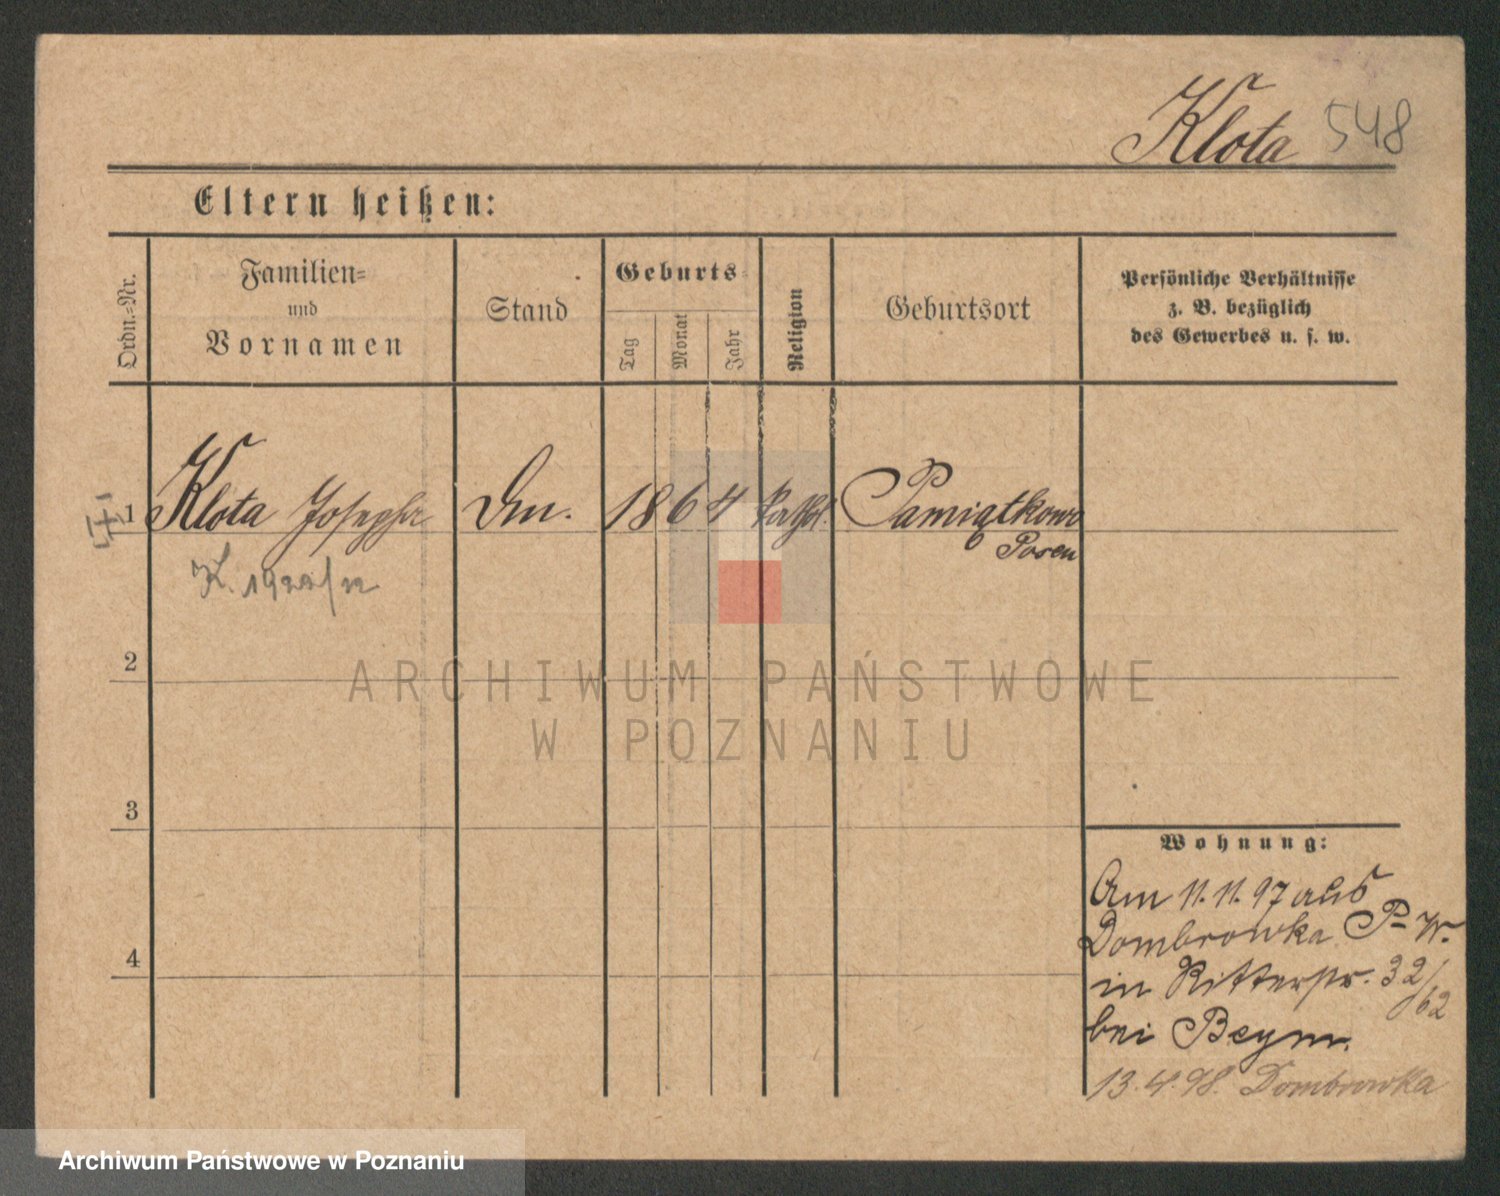 Klota 548
Eltern heißen:
Ordn.=Nr.
Familien=
und
Vornamen
Stand
Geburts=
Tag
Monat
Jahr
Religion
Geburtsort
Persönliche Verhältnisse
z. B. bezüglich
des Gewerbes u. s. w.
1 Klota Josepha 1864 kathol. Pamiątkowo
Posen
K. 1922/22
2
ARCHIWUM PAŃSTWOWE
W POZNANIU
3
4
Wohnung:
Am 11.11.97 aus
Dombrowka P= W.
in Ritterstr. 32/
62
bei Beym.
13.4.98. Dombrowka
Archiwum Państwowe w Poznaniu